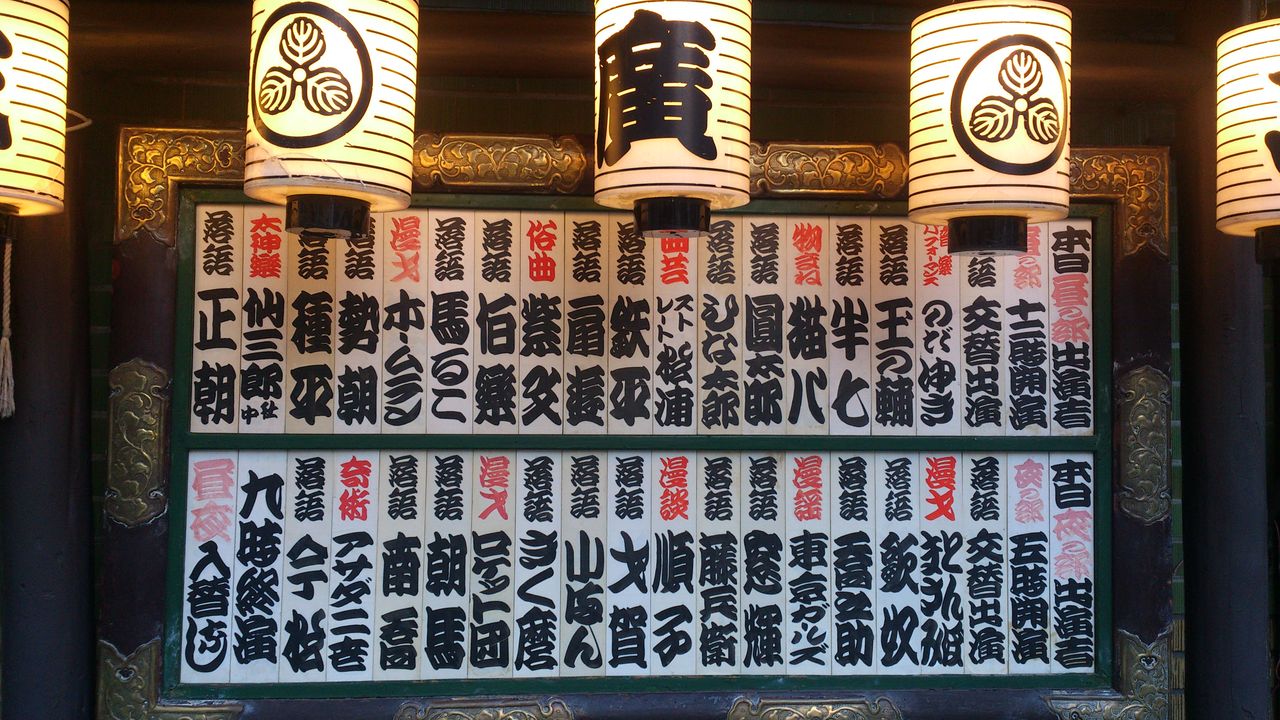 廣
本日昼の部出演者
十二時開演
落語 交替出演
のだゆき
落語 王の輔
落語 牛七
物まね 猫八
落語 圓太郎
落語 しな太郎
曲芸 ストレート松浦
落語 鉄平
落語 扇遊
俗曲 紫文
落語 伯樂
落語 馬るこ
漫才 ホームラン
落語 勢朝
落語 種平
太神樂 仙三郎社中
落語 正朝
本日夜の部出演者
夜の部 五時開演
落語 交替出演
漫才
落語 欽奴
落語 吾之助
漫謡 東京ガールズ
落語 窓輝
落語 藤兵衛
漫談 順子
落語 才賀
落語 小ゑん
落語 きく麿
漫才 ロケット団
落語 朝馬
落語 南喬
奇術 アサダ二世
落語 今松
九時終演
昼夜入替なし